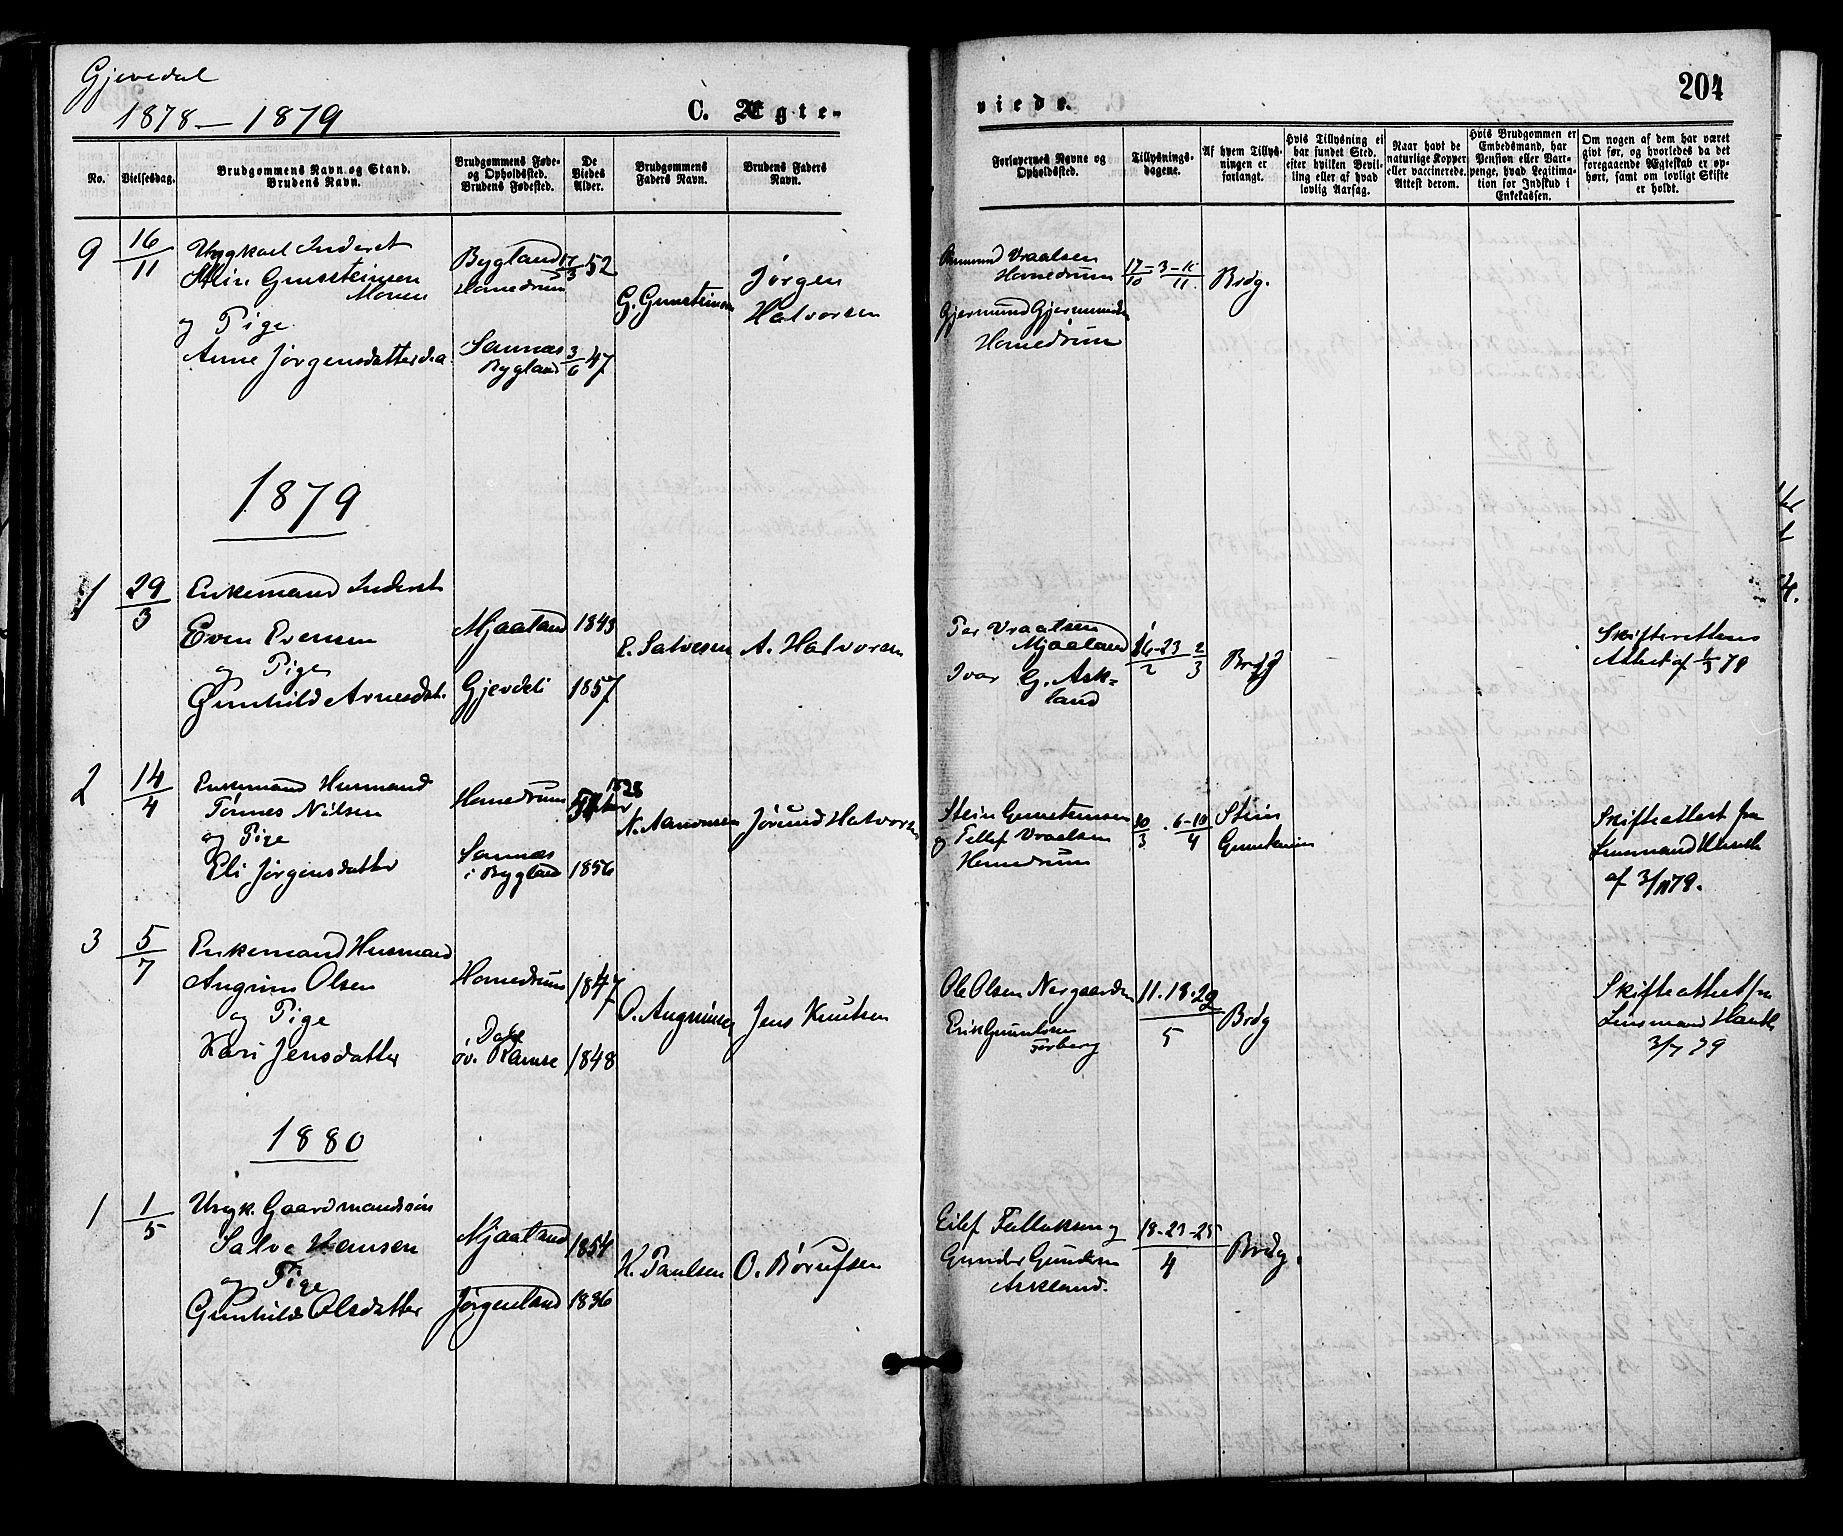 Gjevedal
1878 – 1879
C. Ægte-
viede.
204
No.
Vielsesdag.
Brudgommens Navn og Stand.
Brudens Navn.
Brudgommens Føde-
og Opholdssted.
Brudens Fødested.
De
Viedes
Alder.
Brudgommens
Faders Navn.
Brudens Faders
Navn.
Forlovernes Navne og
Opholdssted.
Tillysnings-
dagene.
Af hvem Tillys-
ningen er
forlangt.
Hvis Tillysning ei
har fundet Sted,
efter hvilken Bevil-
ling eller af hvad
lovlig Aarsag.
Naar havt de
naturlige Kopper
eller vaccinerede.
Attest derom.
Hvis Brudgommen er
Embedsmand, har
Pension eller Vart-
penge, hvad Legitima-
tion for Indskud i
Enkekassen.
Om nogen af dem har været
givt før, og hvorledes da det
foregaaende Ægteskab er op-
hørt, samt om lovligt Skifte
er holdt.
9
16/11
Ungkarl Inderst
Stein Gunsteinsen
Moen
og Pige
Anne Jørgensdatter
Bygland
Homedrum
Sannæs
Bygland
17/5 52
3/6 47
G. Gunsteinsen
Jørgen
Halvorsen
Vraalsen
Homedrum
Gjermund Gjermundsen
Homedrum
17/10 3-11/11
Brdg.
1879
1
29/3
Enkemand Inderst
Even Evensen
og Pige
Gunhild Arnesdat.
Mjaaland
Gjevdeli
1843
1857
E. Salvesen
A. Halvorsen
Per Vraalsen
Mjaaland
Ivar G. Ask-
land
16-23/2 2/3
Brdg
Skifterettens
Attest af 1/3 79
2
14/4
Enkemand Husmand
Tønnes Nilsen
og Pige
Eli Jørgensdatter
Homedrum
Sannæs
i Bygland
1828
1856
N. Aanonsen
Jørund Halvorsen
Stein Gunsteinsen
og Tellef Vraalsen
Homedrum
30/3 . 6-10/4
Stein
Gunsteinsen
Skifteattest fra
Lensmand
af 3/ 79.
3
5/7
Enkemand Husmand
Augrim Olsen
og Pige
Kari Jensdatter
Homedrum
Dale
øv. Ramse
1847
1848
O. Augrimsen
Jens Knutsen
Ole Olsen Norgaarden
Erik Gunulvsen
Førberg
11.18.22/5
Brdg
Skifteattest fra
Lensmand
3/7 79
1880
1
1/5
Ungk. Gaardmandssøn
Salve Hansen
og Pige
Gunhild Olsdatter
Mjaaland
Jørgenland
1854
1836
H. Paulsen
O. Børufsen
Eilef Tallaksen og
Gunder Gundersen
Askland.
18-23-25/4
Brdg.